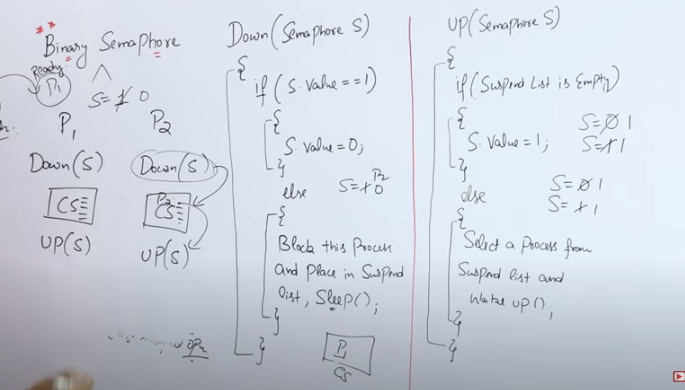 ** Binary Semaphore
Ready
P1
S=1 0
P1 P2
Down(S) Down(S)
CS P2 CS
UP(S) UP(S)
Down(Semaphore S)
{
if (S.value==1)
{
S.value=0;
}
else S=1 0 P2
{
Block this Process
and Place in Suspend
list, Sleep();
}
}
P1
CS
UP(Semaphore S)
{
if(Suspend List is Empty)
{
S=0 1
S.value=1; S=1 1
}
else S=0 1
S=1 1
{
Select a Process from
Suspend list and
wake up();
}
}